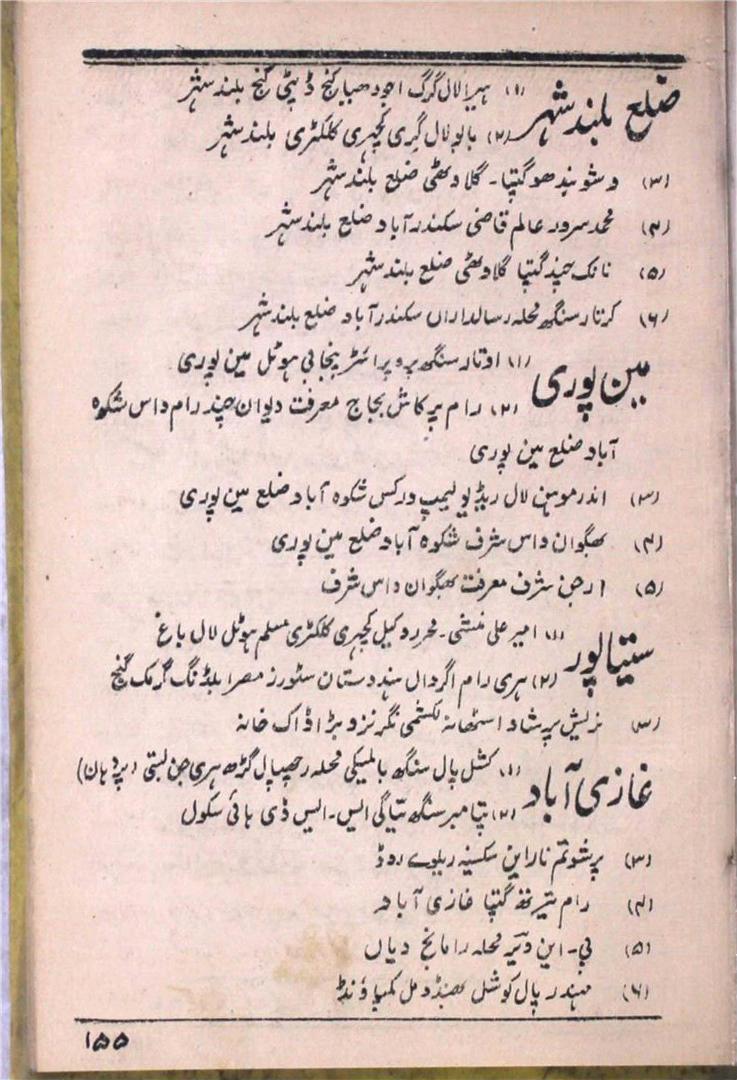 ضلع بلند شہر (۱) ہیرالال گرگ اجودھیا گنج ڈپٹی گنج بلند شہر
(۲) بابو لال گری کچہری کلکٹری بلند شہر
(۳) وشو بندھو گپتا۔ گلاوٹھی ضلع بلند شہر
(۴) محمد سرور عالم قاضی سکندر آباد ضلع بلند شہر
(۵) نانک چند گپتا گلاوٹھی ضلع بلند شہر
(۶) کرتار سنگھ محلہ رسالداراں سکندر آباد ضلع بلند شہر
مین پوری (۱) اوتار سنگھ پروپرائٹر پنجابی ہوٹل مین پوری
(۲) رام پرکاش بجاج معرفت دیوان چند رام داس شکوہ
آباد ضلع مین پوری
(۳) اندر موہن لال ریڈیو لیمپ ورکس شکوہ آباد ضلع مین پوری
(۴) بھگوان داس شرف شکوہ آباد ضلع مین پوری
(۵) ارجن شرف معرفت بھگوان داس شرف
ستیاپور (۱) امیر علی منشی۔ محرر وکیل کچہری کلکٹری مسلم ہوٹل لال باغ
(۲) ہری رام اگروال ہندوستان سٹورز مصرا بلڈنگ گرمک گنج
(۳) نریش پرشاد استھانہ لکشمی نگر نزد بڑا ڈاک خانہ
غازی آباد (۱) کشل پال سنگھ بالمیکی محلہ رچھپال گڑھ ہری جن بستی (پردہان)
(۲) پتامبر سنگھ تیاگی ایس۔ ایس ڈی ہائی سکول
(۳) پرشوتم نارا‎ین سکسینہ ریلوے روڈ
(۴) رام تیرتھ گپتا غازی آباد
(۵) بی۔ این دتیر محلہ رامانج دیاں
(۶) مہندر پال کوشل کھنڈ مل کمپاؤنڈ
۱۵۵